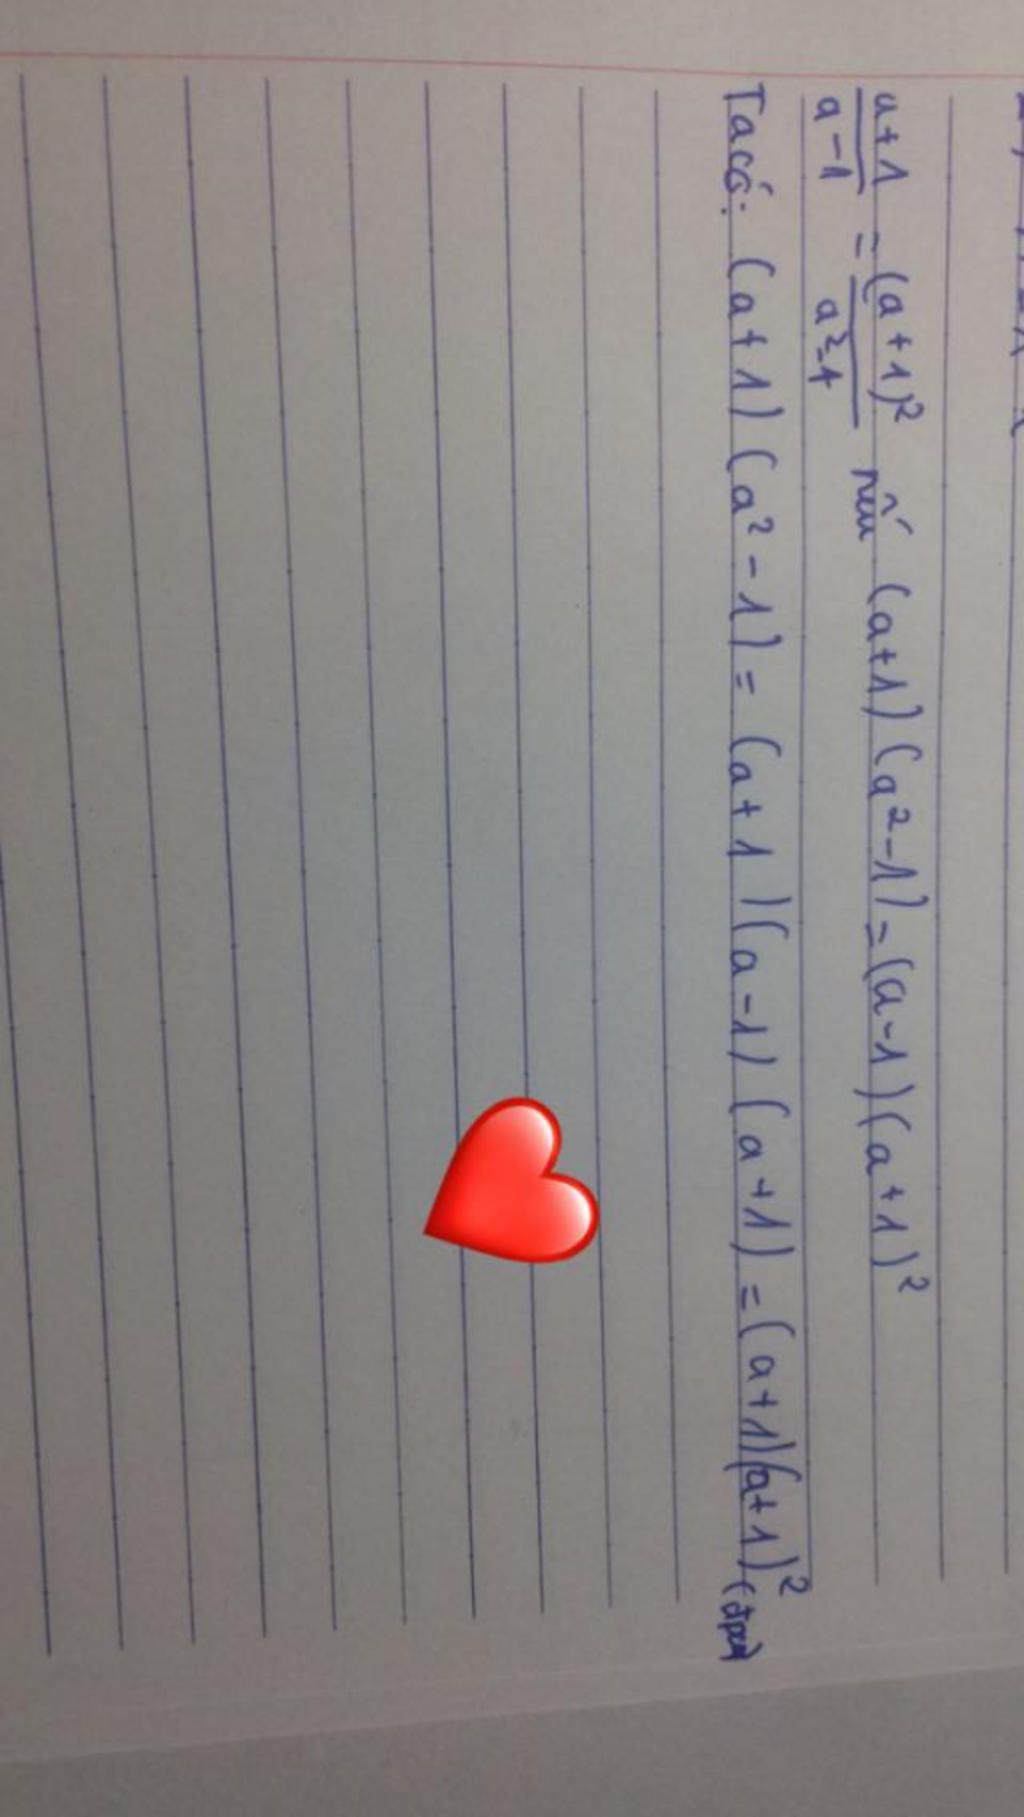 a+1/a-1 = (a+1)²/a²-1 nếu (a+1)(a²-1)=(a-1)(a+1)²
Ta có: (a+1)(a²-1) = (a+1)(a-1)(a+1) = (a+1)(a+1)² (đpcm)